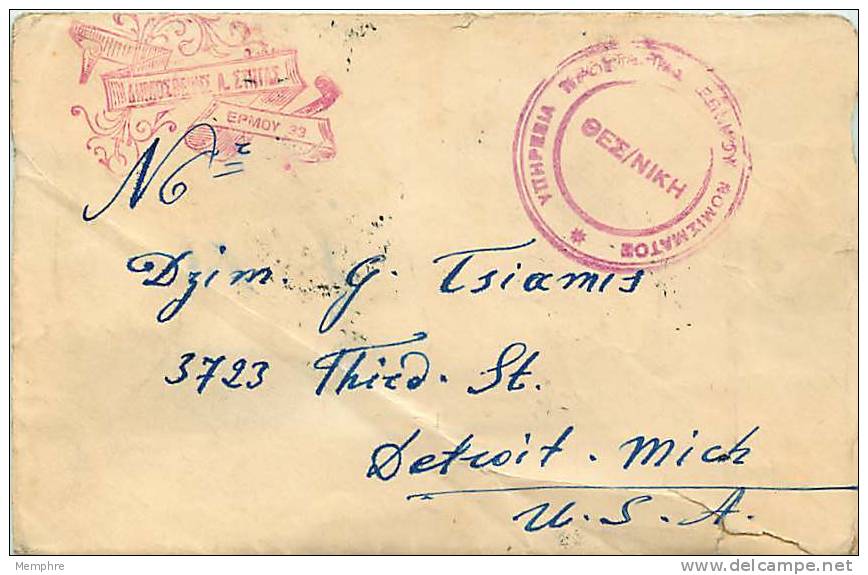 ΔΗΜΟΣΘΕΝΗΣ Α.
ΕΡΜΟΥ 33
ΥΠΗΡΕΣΙΑ ΕΘΝΙΚΟΥ ΝΟΜΙΣΜΑΤΟΣ *
ΘΕΣ/ΝΙΚΗ
Mr
Dzim. G. Tsiamis
3723 Third. St.
Detroit. Mich
U.S.A.
Memphre
delcampe.net